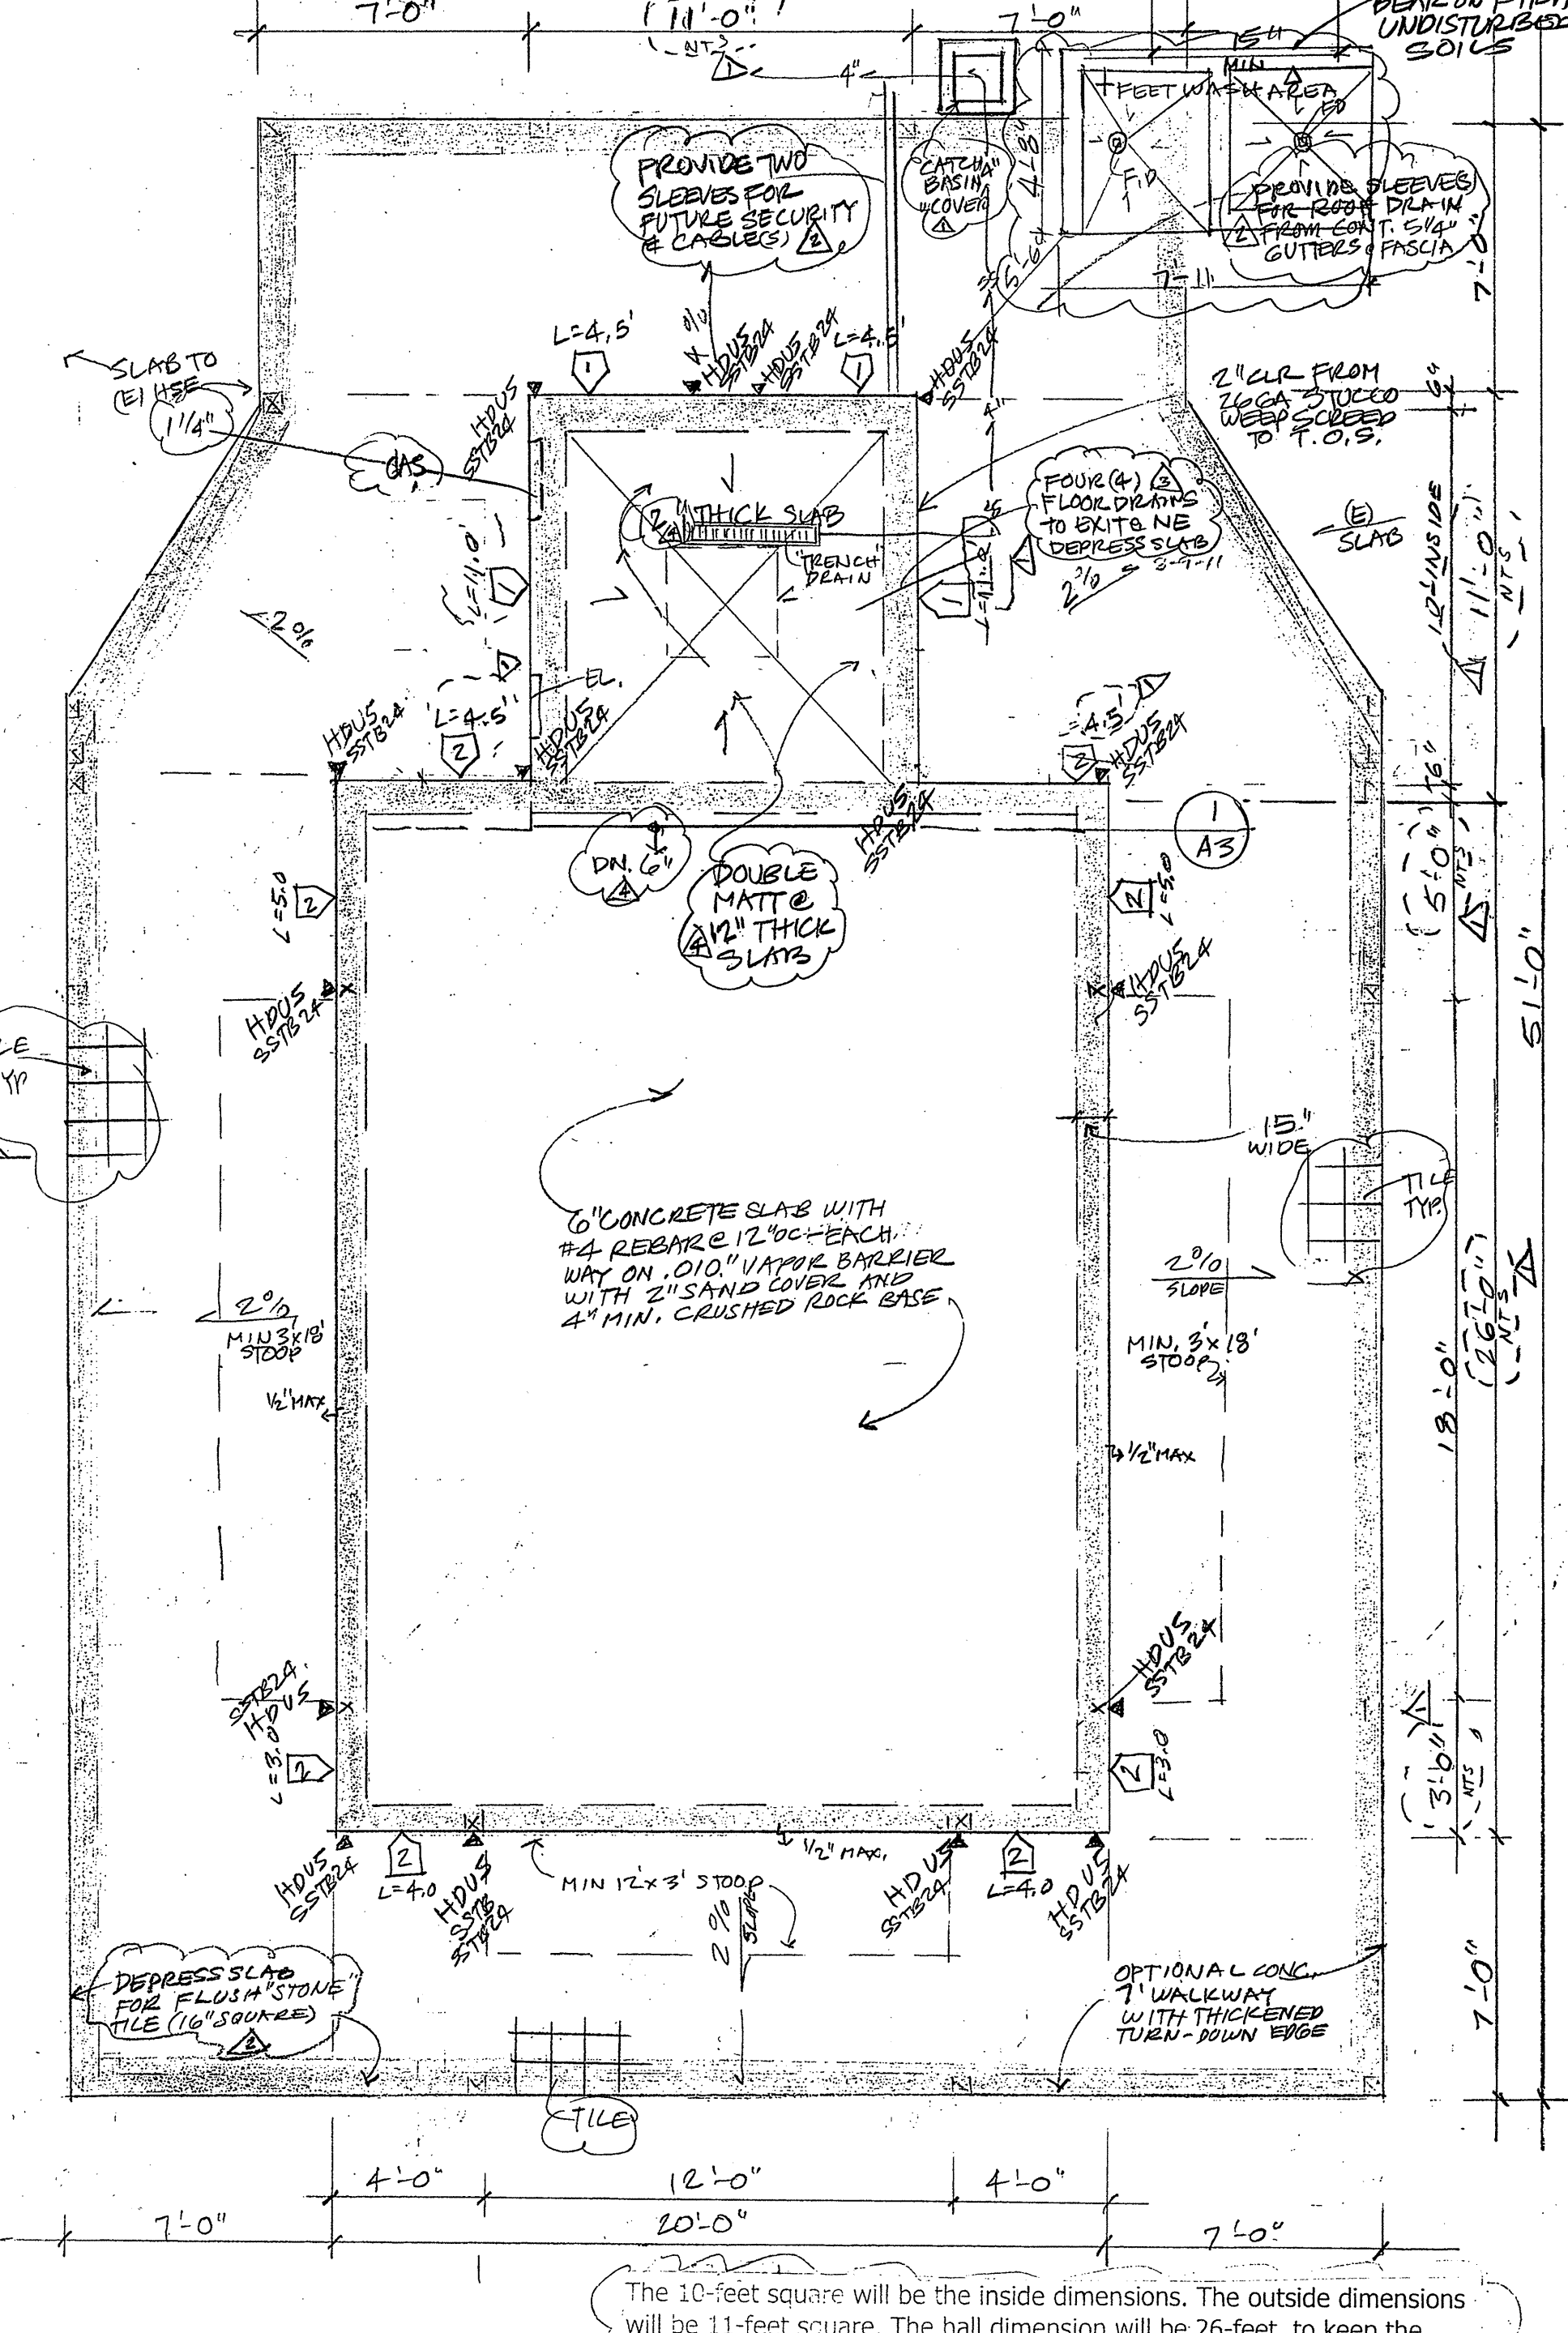 7'-0"
(11'-0")
NTS
7'-0"
BEAR ON FIRM
UNDISTURBED
SOILS
15"
MIN
1
4"
FEET WASH AREA
FD
F.D
PROVIDE TWO
SLEEVES FOR
FUTURE SECURITY
& CABLE(S) 2
CATCH
BASIN
COVER
1
4"
4'-8 1/2"
PROVIDE SLEEVE(S)
FOR ROOF DRAIN
2 FROM CONT. 5 1/4"
GUTTERS & FASCIA
7'-0"
5'-6"
7'-11
L=4.5'
1
HDU5
SSTB24
HDU5
SSTB24
L=4.5'
1
HDU5
SSTB24
HDU5
SSTB24
SLAB TO
(E) HSE
1 1/4"
GAS
2" CLR FROM
26 GA STUCCO
WEEP SCREED
TO T.O.S.
6"
4"
2" THICK SLAB
"TRENCH"
DRAIN
FOUR (4) 3
FLOOR DRAINS
TO EXIT @ NE
DEPRESS SLAB
3-9-11
(E)
SLAB
10'-INSIDE
11'-0"
NTS
1
L=11.0'
1
1
2%
2%
EL.
L=4.5'
2
HDU5
SSTB24
HDU5
SSTB24
4.5'
1
2
HDU5
SSTB24
HDU5
SSTB24
1
A3
6"
(5'-0")
NTS
1
DN. 6"
4
DOUBLE
MATT @
4 12" THICK
SLAB
L=5.0
2
2
L=5.0
HDU5
SSTB24
HDU5
SSTB24
51'-0"
15"
WIDE
TILE
TYP.
6" CONCRETE SLAB WITH
#4 REBAR @ 12" OC EACH
WAY ON .010" VAPOR BARRIER
WITH 2" SAND COVER AND
4" MIN. CRUSHED ROCK BASE
2%
SLOPE
2%
MIN 3'x18'
STOOP
MIN. 3'x18'
STOOP
1/2" MAX
1/2" MAX
18'-0"
(26'-0")
NTS
1
SSTB24
HDU5
HDU5
SSTB24
L=3.0
2
2
L=3.0
3'-6"
NTS
1
HDU5
SSTB24
2
L=4.0
HDU5
SSTB
SSTB24
MIN 12'x3' STOOP
1/2" MAX.
2%
SLOPE
HDU5
SSTB24
2
L=4.0
HDU5
SSTB24
DEPRESS SLAB
FOR FLUSH "STONE"
TILE (16" SQUARE)
2
OPTIONAL CONC.
7' WALKWAY
WITH THICKENED
TURN-DOWN EDGE
7'-0"
TILE
4'-0"
12'-0"
4'-0"
7'-0"
20'-0"
7'-0"
The 10-feet square will be the inside dimensions. The outside dimensions
will be 11-feet square. The hall dimension will be 26-feet, to keep the